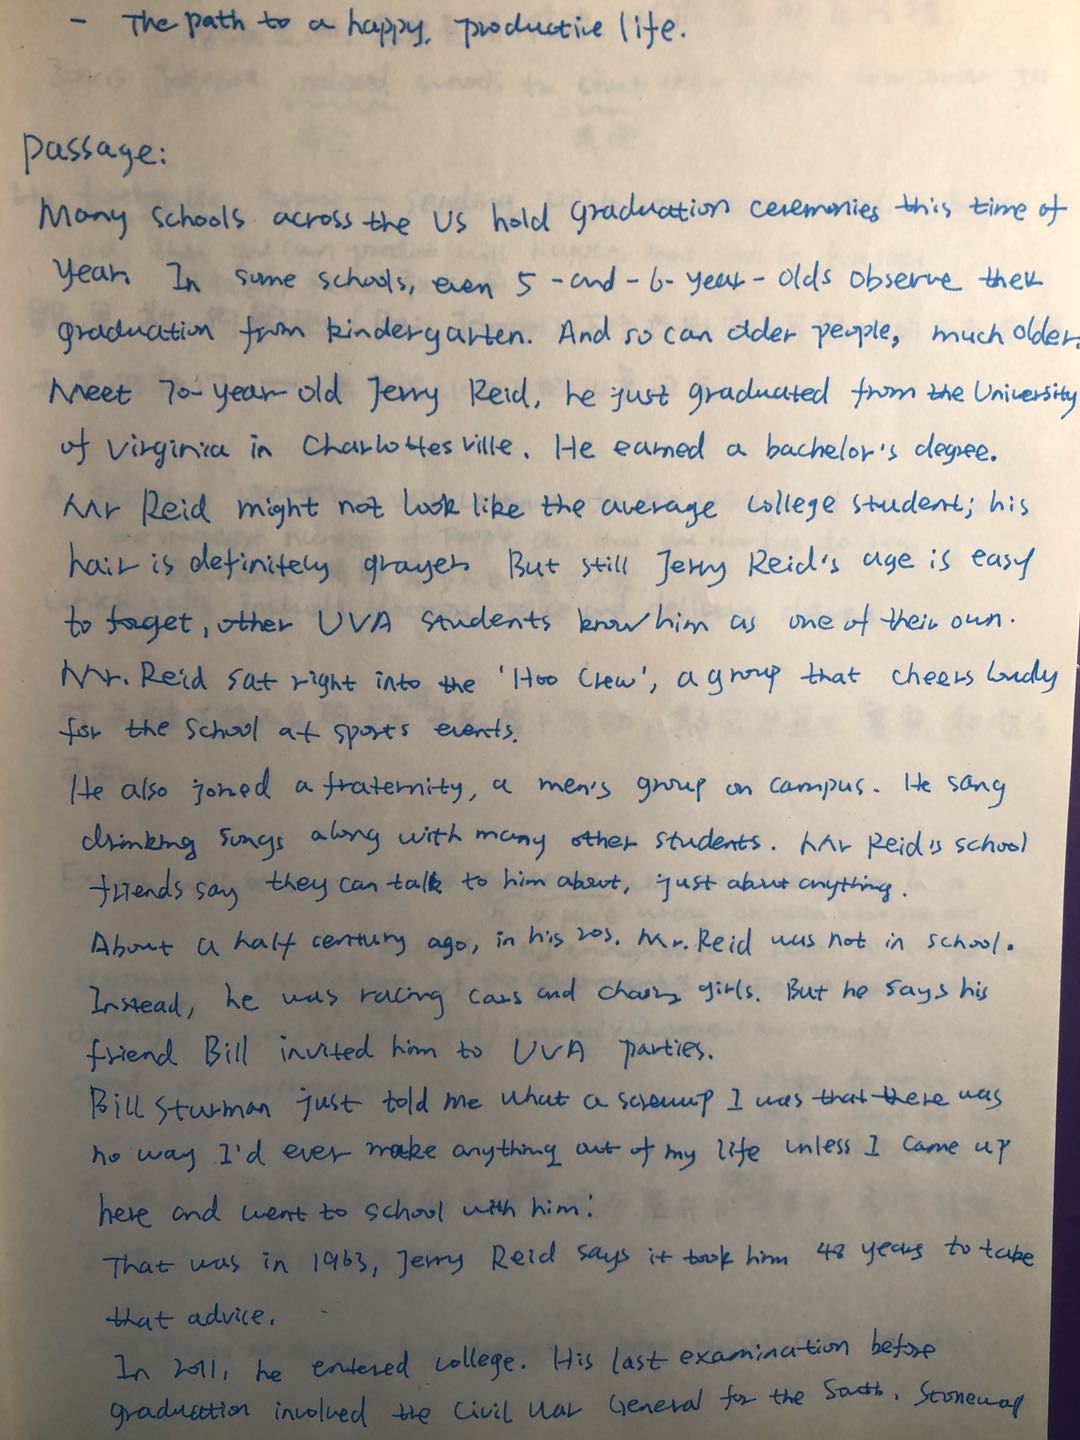 - The path to a happy, productive life.
Passage:
Many schools across the US hold graduation ceremonies this time of
year. In some schools, even 5-and-6-year-olds observe their
graduation from kindergarten. And so can older people, much older.
Meet 70-year-old Jerry Reid, he just graduated from the University
of Virginia in Charlottesville. He earned a bachelor's degree.
Mr Reid might not look like the average college student; his
hair is definitely grayer. But still Jerry Reid's age is easy
to forget, other UVA students know him as one of their own.
Mr. Reid sat right into the 'Hoo Crew', a group that cheers loudly
for the school at sports events.
He also joined a fraternity, a men's group on campus. He sang
drinking songs along with many other students. Mr Reid's school
friends say they can talk to him about, just about anything.
About a half century ago, in his 20s. Mr. Reid was not in school.
Instead, he was racing cars and chasing girls. But he says his
friend Bill invited him to UVA parties.
Bill Sturman just told me what a screwup I was that there was
no way I'd ever make anything out of my life unless I came up
here and went to school with him!
That was in 1963, Jerry Reid says it took him 48 years to take
that advice.
In 2011, he entered college. His last examination before
graduation involved the Civil War General for the South, Stonewall